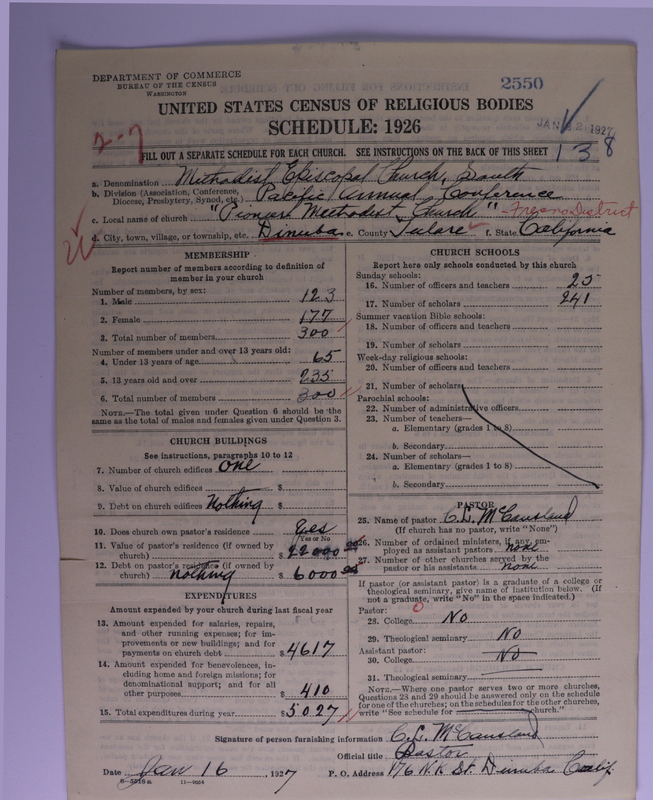 DEPARTMENT OF COMMERCE
BUREAU OF THE CENSUS
WASHINGTON
2550
UNITED STATES CENSUS OF RELIGIOUS BODIES
SCHEDULE: 1926
JAN 2 1927
2-7
FILL OUT A SEPARATE SCHEDULE FOR EACH CHURCH. SEE INSTRUCTIONS ON THE BACK OF THIS SHEET
1 3 8
a. Denomination Methodist Episcopal Church, South
b. Division (Association, Conference, Diocese, Presbytery, Synod, etc.) Pacific Annual Conference
c. Local name of church "Pioneer Methodist Church" - Fresno District
d. City, town, village, or township, etc. Dinuba e. County Tulare f. State California
MEMBERSHIP
Report number of members according to definition of
member in your church
Number of members, by sex:
1. Male 123
2. Female 177
3. Total number of members 300
Number of members under and over 13 years old:
4. Under 13 years of age 65
5. 13 years old and over 235
6. Total number of members 300
NOTE.—The total given under Question 6 should be the
same as the total of males and females given under Question 3.
CHURCH BUILDINGS
See instructions, paragraphs 10 to 12
7. Number of church edifices one
8. Value of church edifices $
9. Debt on church edifices Nothing $
10. Does church own pastor's residence Yes
Yes or No
11. Value of pastor's residence (if owned by
church) $
12. Debt on pastor's residence (if owned by
church) nothing $6000
EXPENDITURES
Amount expended by your church during last fiscal year
13. Amount expended for salaries, repairs,
and other running expenses; for im-
provements or new buildings; and for
payments on church debt $4617
14. Amount expended for benevolences, in-
cluding home and foreign missions; for
denominational support; and for all
other purposes $410
15. Total expenditures during year $5027
CHURCH SCHOOLS
Report here only schools conducted by this church
Sunday schools:
16. Number of officers and teachers 25
17. Number of scholars 241
Summer vacation Bible schools:
18. Number of officers and teachers
19. Number of scholars
Week-day religious schools:
20. Number of officers and teachers
21. Number of scholars
Parochial schools:
22. Number of administrative officers
23. Number of teachers—
a. Elementary (grades 1 to 8)
b. Secondary
24. Number of scholars—
a. Elementary (grades 1 to 8)
b. Secondary
PASTOR
25. Name of pastor C. L. McCausland
(If church has no pastor, write "None")
26. Number of ordained ministers, if any, em-
ployed as assistant pastors none
27. Number of other churches served by the
pastor or his assistants none
If pastor (or assistant pastor) is a graduate of a college or
theological seminary, give name of institution below. (If
not a graduate, write "No" in the space indicated.)
Pastor:
28. College No
29. Theological seminary No
Assistant pastor:
30. College No
31. Theological seminary
NOTE.—Where one pastor serves two or more churches,
Questions 28 and 29 should be answered only on the schedule
for one of the churches; on the schedules for the other churches,
write "See schedule for church."
Signature of person furnishing information C. L. McCausland
Official title Pastor
Date Jan 16, 1927 P. O. Address 176 N. K St. Dinuba Calif.